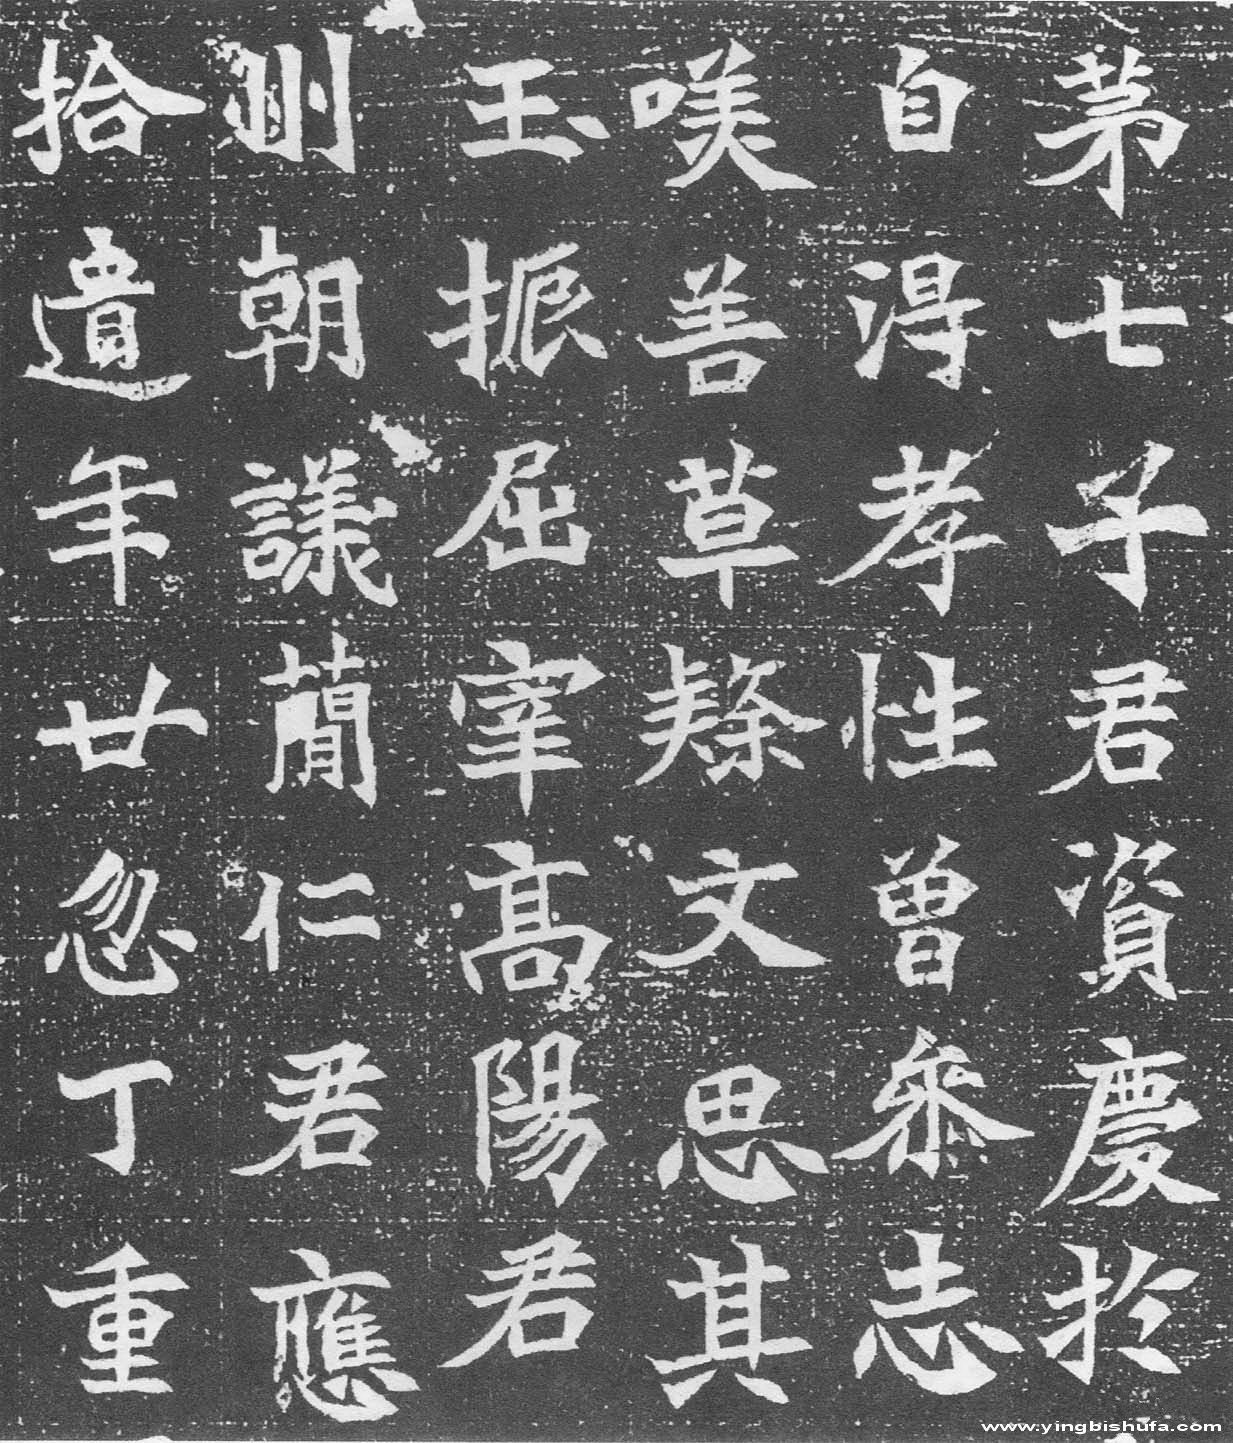 苐七子君資慶於
自淂孝性曾叅志
善草隸文思其
玉振屈宰髙陽君
刪朝議蕳仁君應
拾遺年廿忽丁重
www.yingbishufa.com